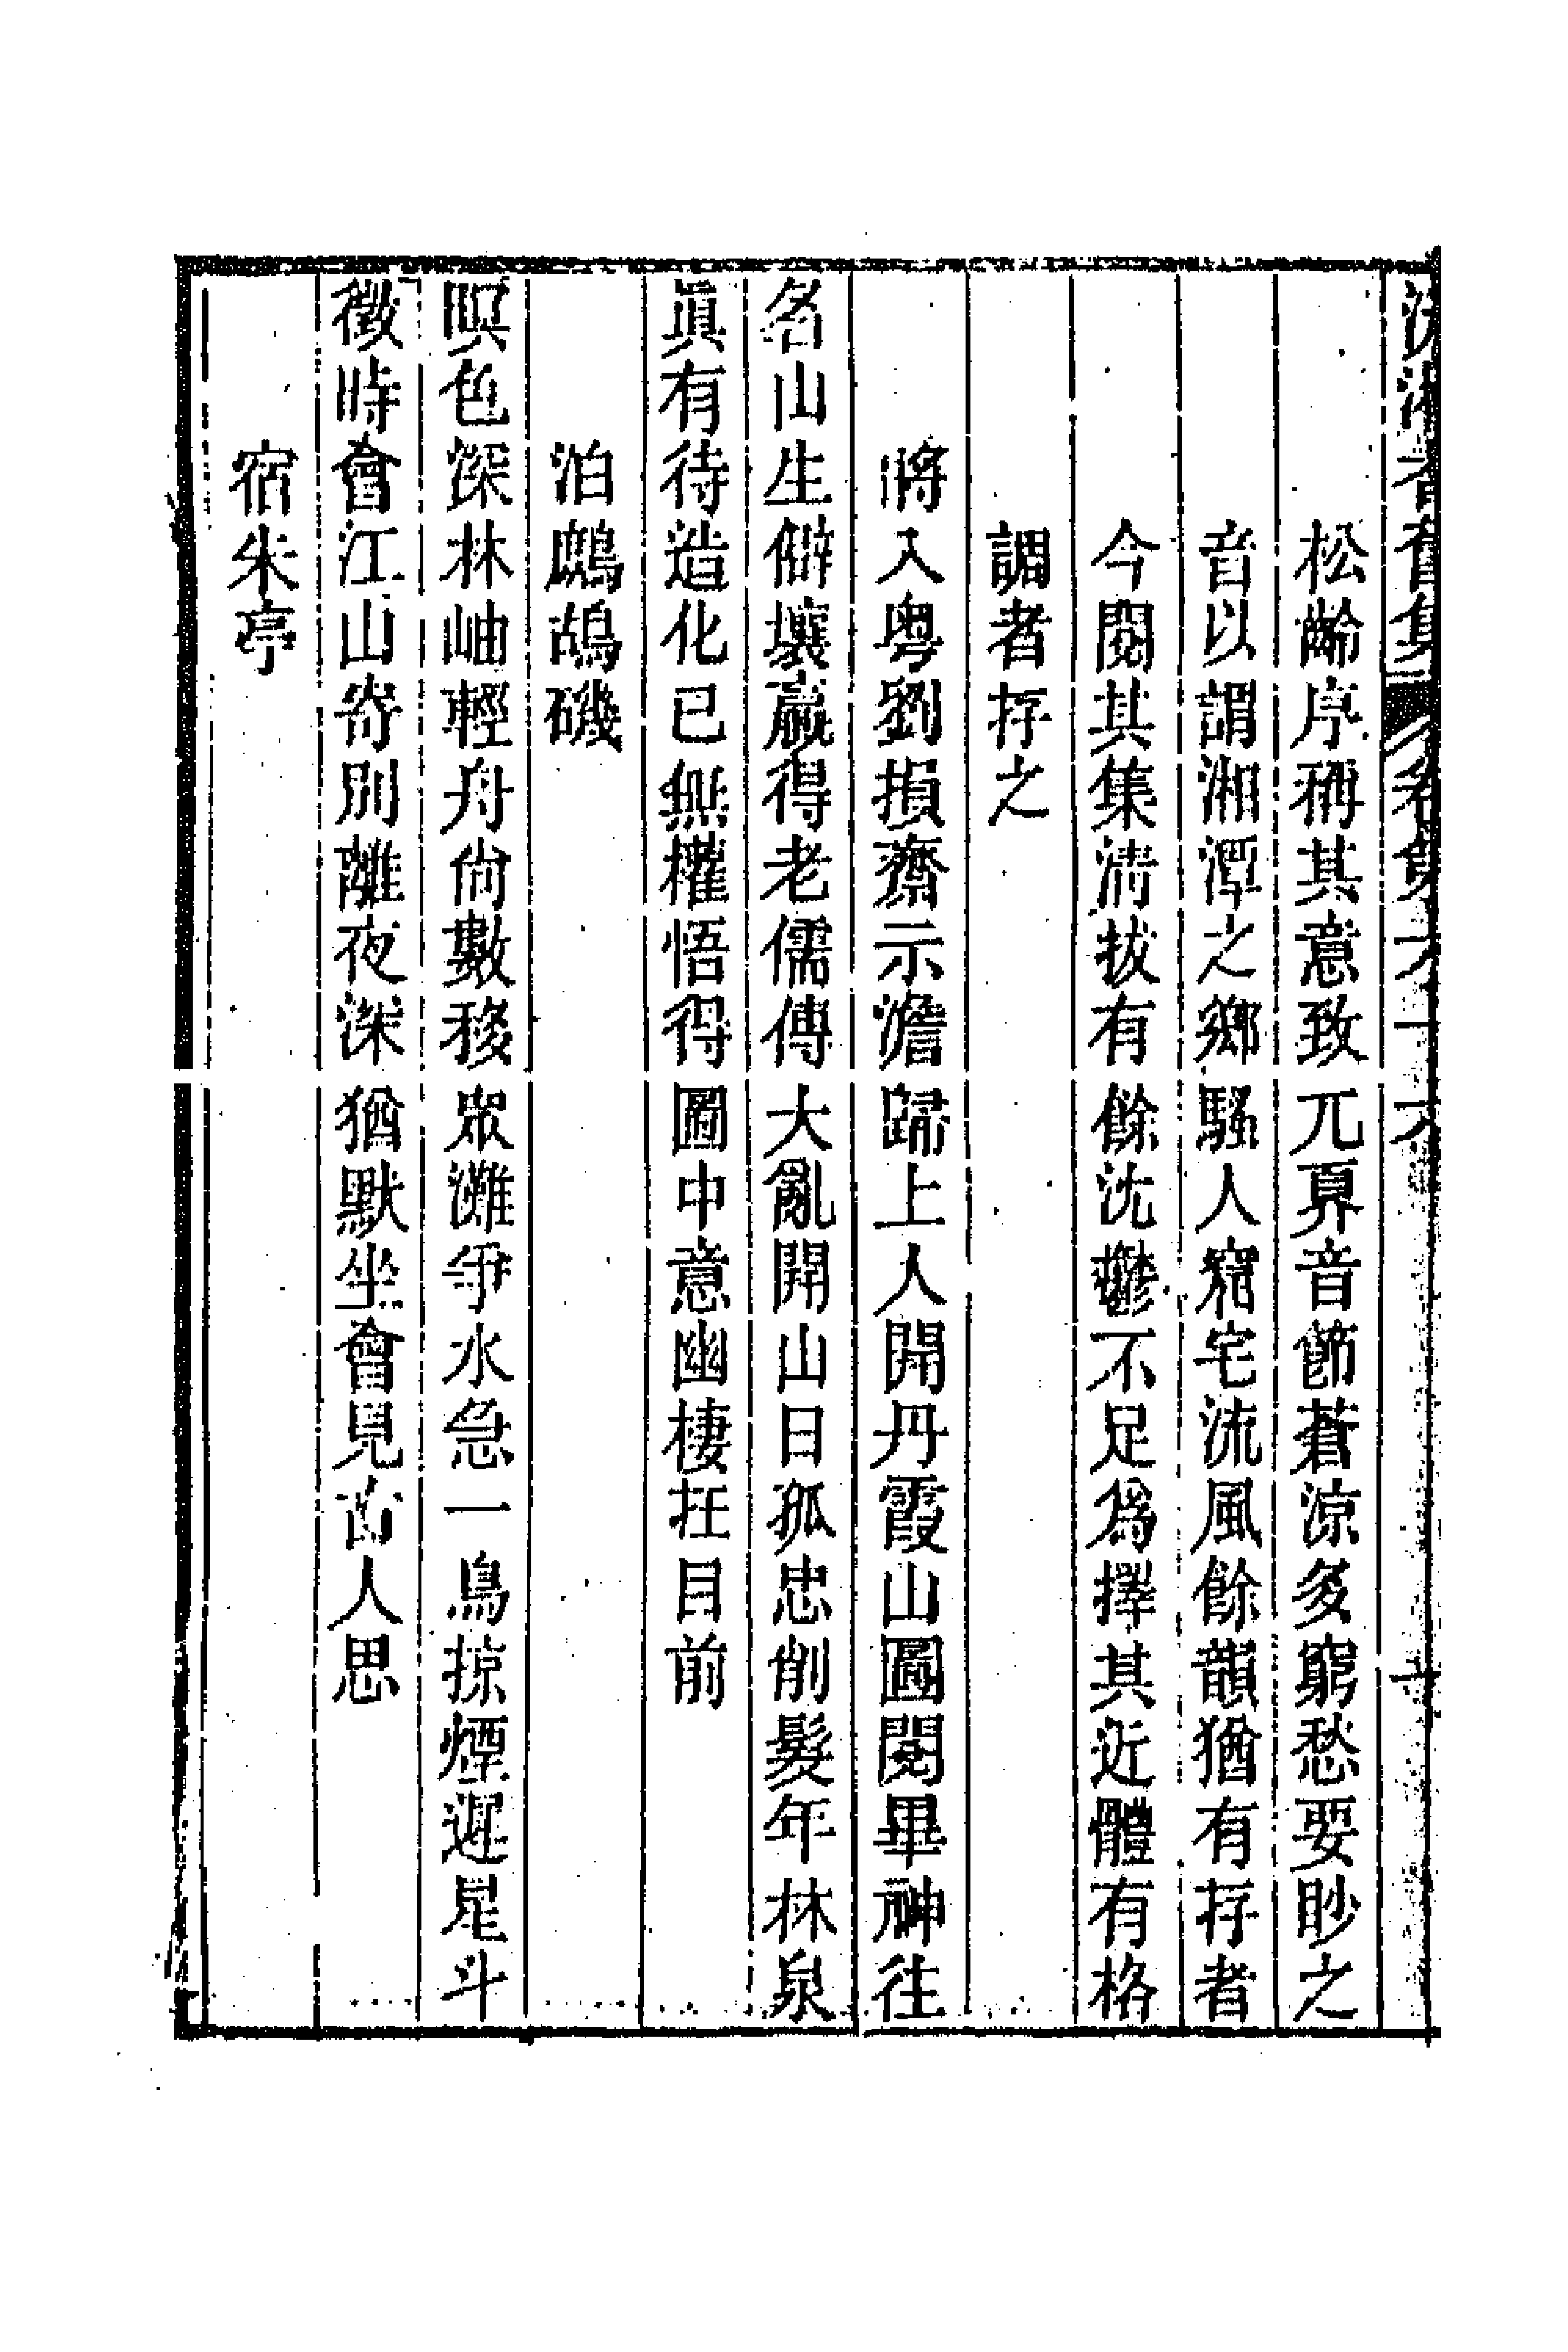 松齡序稱其意致兀奡音節蒼涼多窮愁要眇之
音以謂湘潭之鄉騷人窟宅流風餘韻猶有存者
今閱其集淸拔有餘沈鬱不足爲擇其近體有格
調者存之
將入粤劉損齋示澹歸上人開丹霞山圖閱畢神往
名山生僻壤贏得老儒傳大亂開山日孤忠削髮年林泉
眞有待造化已無權悟得圖中意幽棲在目前
泊鷓鴣磯
暝色深林岫輕舟尙數移衆灘爭水急一鳥掠煙遲星斗
微時會江山寄別離夜深猶默坐會見古人思
宿朱亭